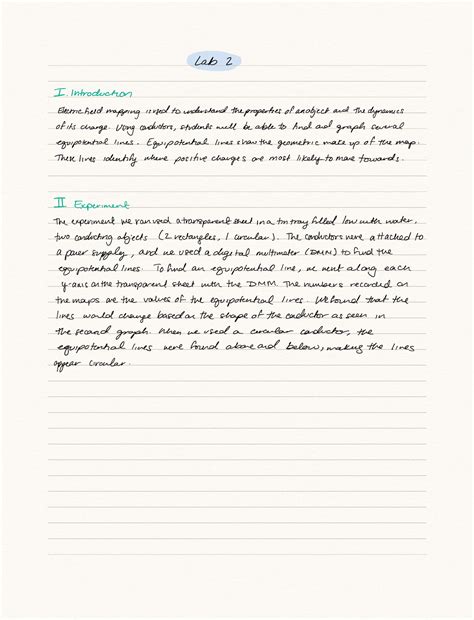 Lab 2
I. Introduction
Electric field mapping is used to understand the properties of an object and the dynamics
of its charge. Using conductors, students will be able to find and graph several
equipotential lines. Equipotential lines show the geometric make up of the map.
These lines identify where positive charges are most likely to move towards.
II Experiment
The experiment we ran used a transparent sheet in a tin tray filled low with water,
two conducting objects (2 rectangles, 1 circular). The conductors were attached to
a power supply, and we used a digital multimeter (DMM) to find the
equipotential lines. To find an equipotential line, we went along each
y-axis on the transparent sheet with the DMM. The numbers recorded on
the maps are the values of the equipotential lines. We found that the
lines would change based on the shape of the conductor as seen in
the second graph. When we used a circular conductor, the
equipotential lines were found above and below, making the lines
appear circular.